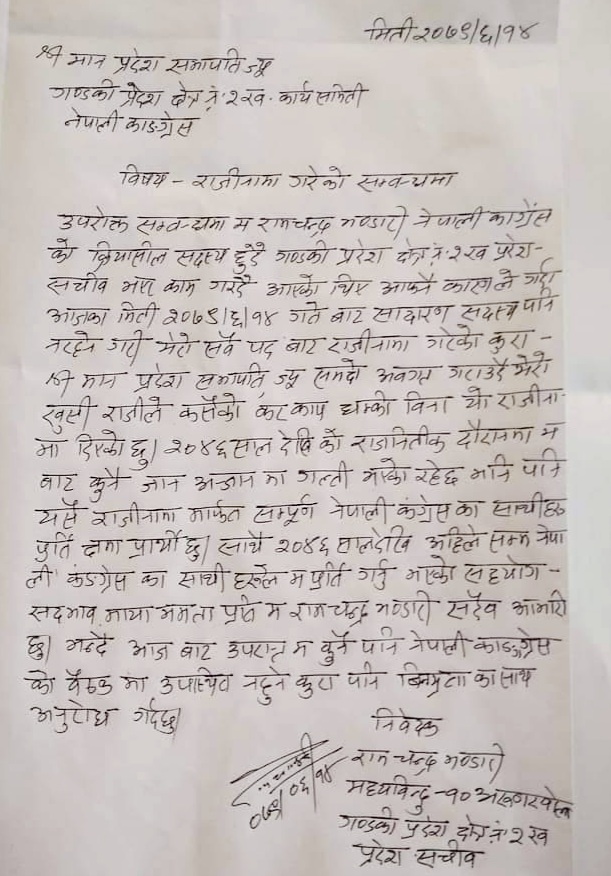 मिती २०७९/६/१४
श्री मान प्रदेश सभापति ज्यू
गण्डकी प्रदेश क्षेत्र नं २ ख. कार्य समिती
नेपाली काङग्रेस
विषय - राजीनामा गरेको सम्वन्धमा
उपरोक्त सम्वन्धमा म रामचन्द्र भण्डारी नेपाली कांग्रेस
को क्रियासील सदस्य हुदै गण्डकी प्रदेश क्षेत्र नं २ ख प्रदेश-
सचीव भएर काम गरदै आएको थिए आफ्नै कारणले गर्दा
आजका मिती २०७९/६/१४ गते बाट सादारण सदस्य पनि
नरहने गरी मेरो सवै पद बाट राजीनामा गरेको कुरा -
श्री मान प्रदेश सभापति ज्यू समक्ष अवगत गराउदै मेरो
खुसी राजीले कसैको कर काप धम्की विना यो राजीना
मा दिएको छु। २०४६ साल देखि को राजनितीक दौरानमा म
बाट कुनै जान अन्जान मा गल्ती भएको रहेछ भने पनि
यसै राजीनामा मार्फत सम्पूर्ण नेपाली कंग्रेस का साथीहरू
प्रति क्षमा प्रार्थी छु। साथै २०४६ सालदेखि अहिले सम्म नेपा
ली कंङग्रेस का साथी हरूले म प्रति गर्नु भएको सहयोग -
सदभाव माया ममता प्रति म राम चन्द्र भण्डारी सदैव आभारी
छु। भन्दै आज बाट उपरान्त म कुनै पनि नेपाली काङग्रेस
को वैठक मा उपस्थित नहुने कुरा पनि बिनम्रता का साथ
अनुरोध गर्दछु।
निवेदक
राम चन्द्र भण्डारी
मध्यविन्दु -१०
गण्डकी प्रदेश क्षेत्र नं २ ख
प्रदेश सचीव
०७९/०६/१४